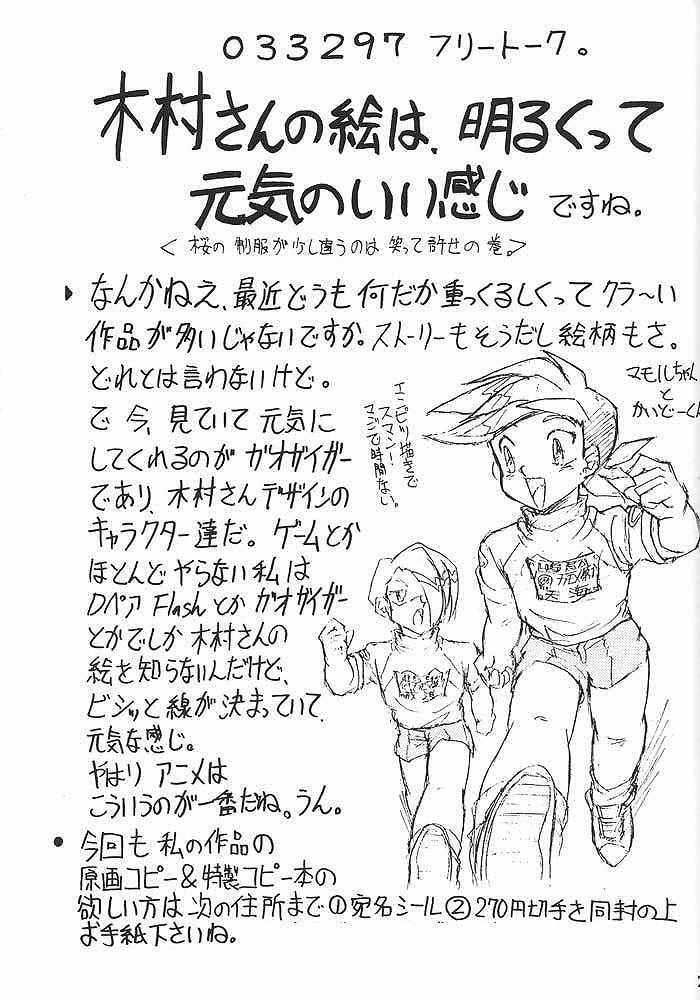 033297 フリートーク。
木村さんの絵は、明るくって
元気のいい感じ ですね。
＜桜の制服が少し違うのは笑って許せの巻。＞
なんかねえ、最近どうも何だか重っくるしくってクラ〜い
作品が多いじゃないですか。ストーリーもそうだし絵柄もさ。
どれとは言わないけど。
で今、見ていて元気に
してくれるのがガオガイガー
であり、木村さんデザインの
キャラクター達だ。ゲームとか
ほとんどやらない私は
DペアFlashとかガオガイガー
とかでしか木村さんの
絵を知らないんだけど、
ビシッと線が決まっていて
元気な感じ。
やはりアニメは
こういうのが一番だね。うん。
エンピツ描きで
スマン！
マジで時間ない。
マモルちゃん
と
かいどーくん
●今回も私の作品の
原画コピー&特製コピー本の
欲しい方は次の住所まで①宛名シール②270円切手を同封の上
お手紙下さいね。